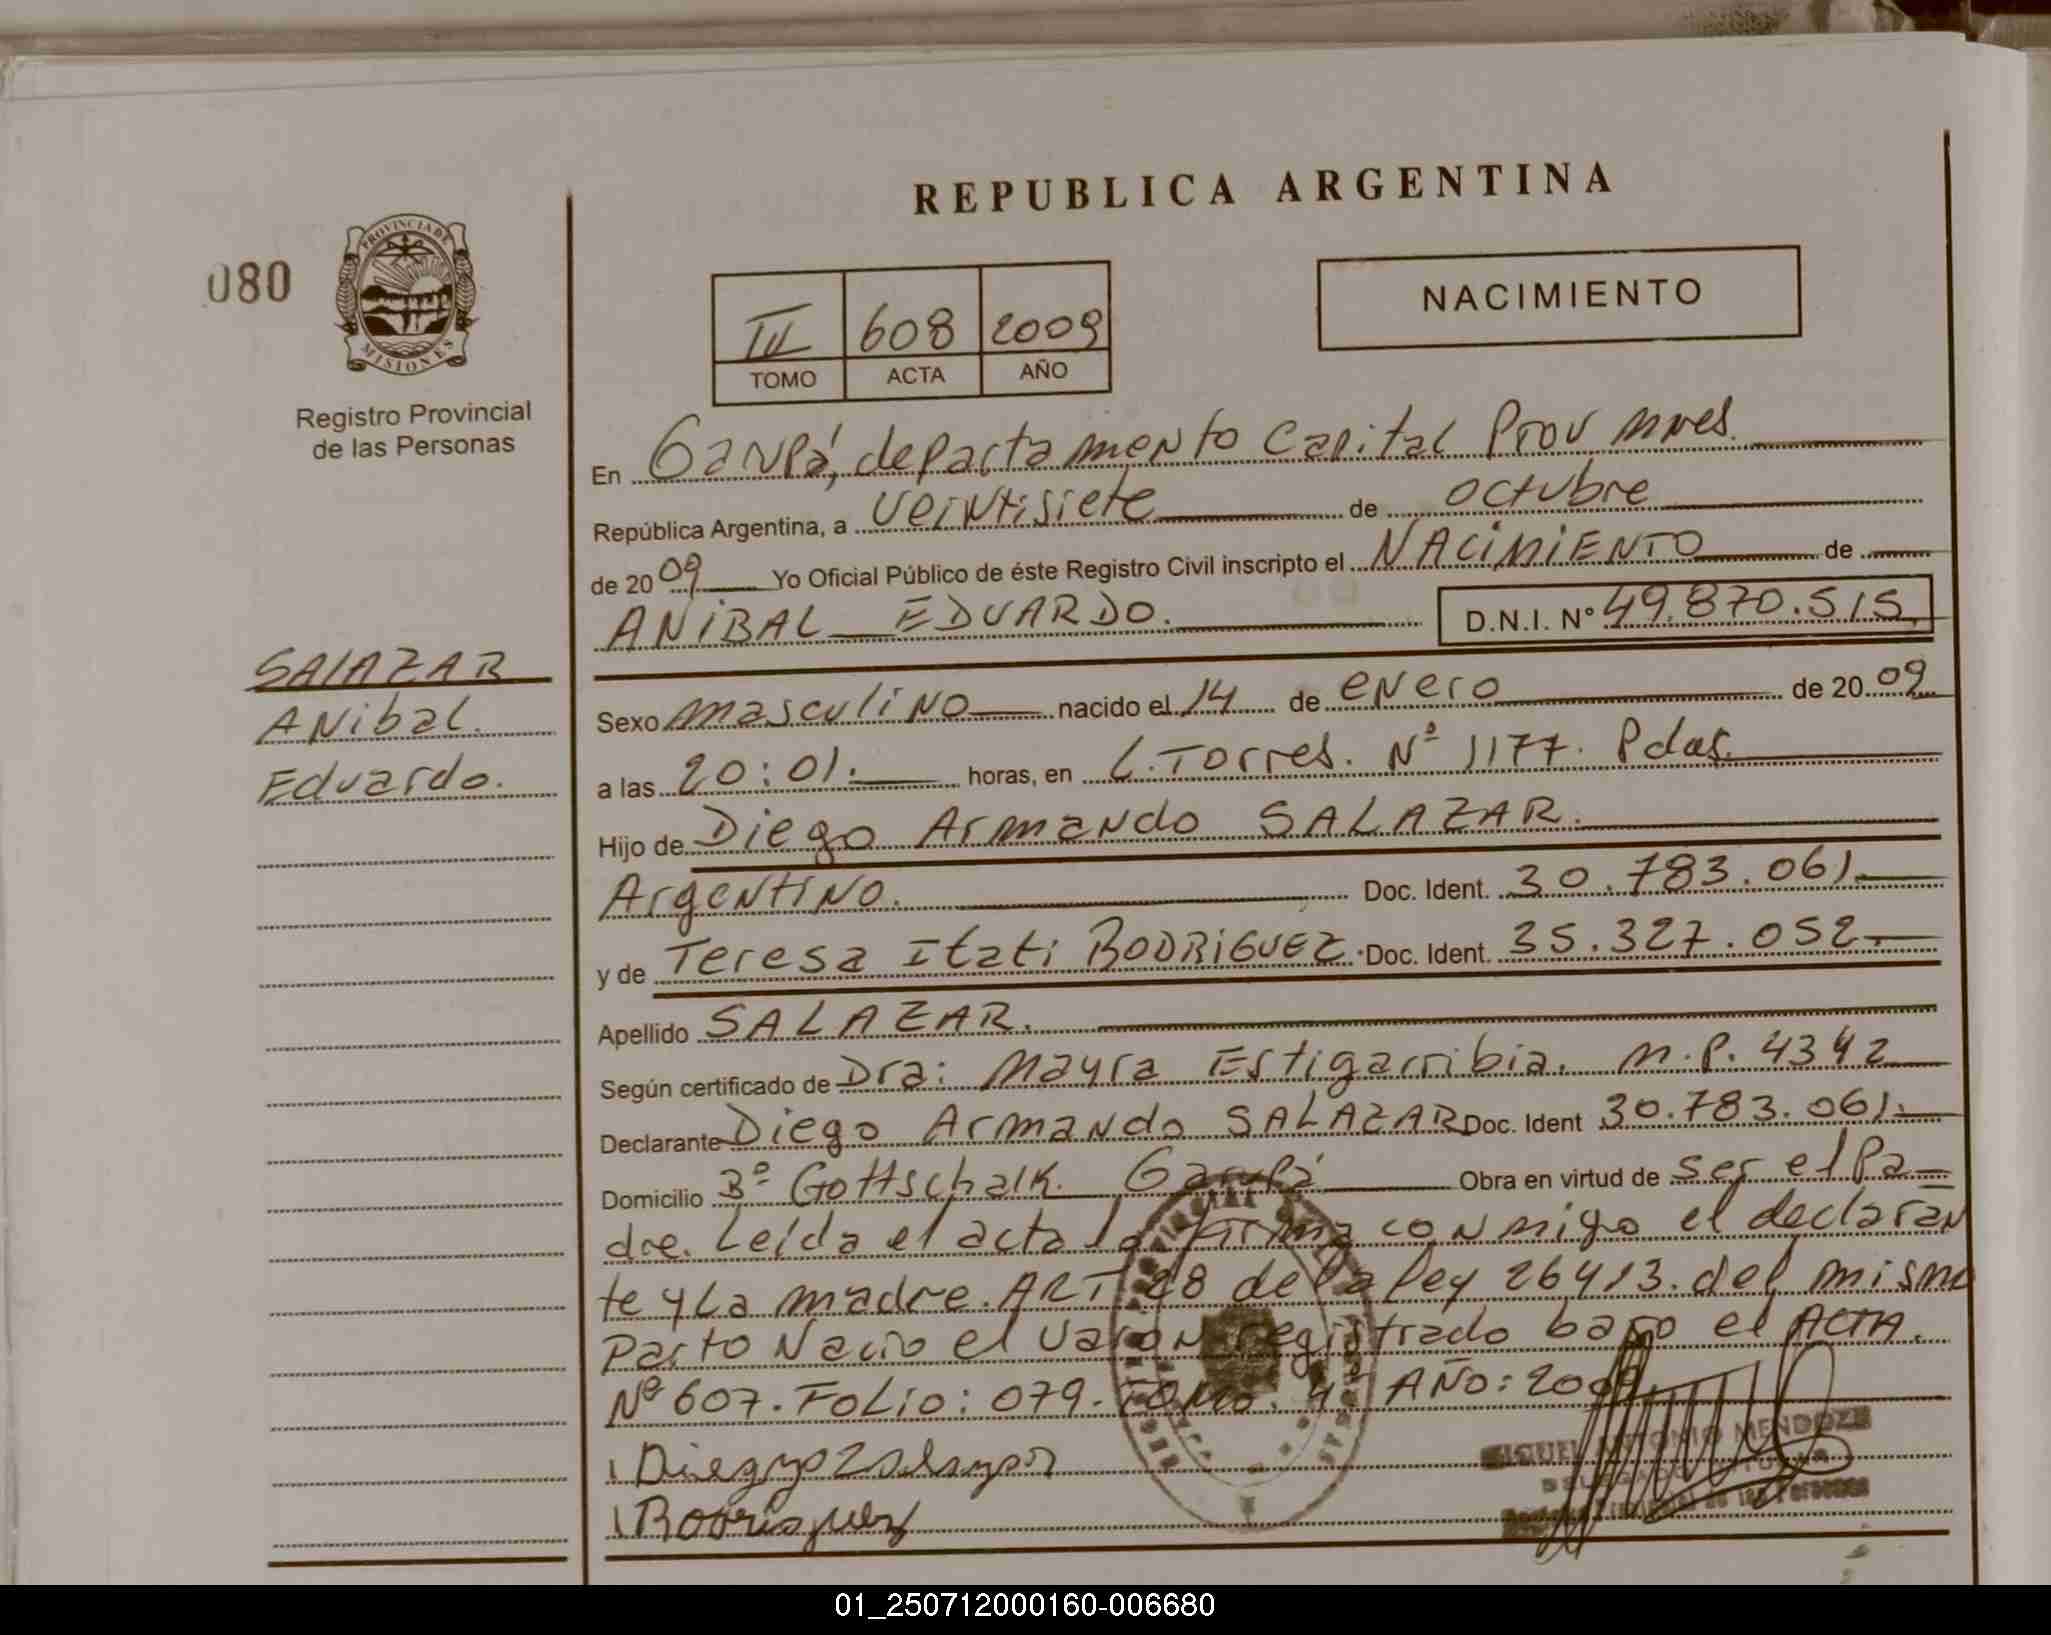 REPUBLICA ARGENTINA
080
PROVINCIA DE
MISIONES
Registro Provincial
de las Personas
NACIMIENTO
608 2009
TOMO ACTA AÑO
En Garupá, departamento Capital Prov Mnes.
República Argentina, a veintisiete de octubre
de 2009 Yo Oficial Público de éste Registro Civil inscripto el NACIMIENTO de
ANIBAL EDUARDO. D.N.I. Nº 49.870.515.
SALAZAR
Anibal.
Eduardo.
Sexo masculino nacido el 14 de enero de 2009
a las 20:01. horas, en L. Torres. Nº 1177. Pdas.
Hijo de Diego Armando SALAZAR.
Argentino. Doc. Ident. 30.783.061.
y de Teresa Itati RODRIGUEZ. Doc. Ident. 35.327.052.
Apellido SALAZAR.
Según certificado de Dra: Mayra Estigarribia. M.P. 4342
Declarante Diego Armando SALAZAR Doc. Ident 30.783.061.
Domicilio Bº Gottschalk. Garupá Obra en virtud de ser el Pa-
dre. Leída el acta la firma conmigo el declaran
te y La madre. ART 28 de la Ley 26413. del mismo
Parto Nació el varon registrado bajo el ACTA.
Nº 607. FOLIO: 079. TOMO. 4º AÑO: 2009.
Rodriguez
MIGUEL ANTONIO MENDOZA
DELEGADO TITULAR
Registro Provincial de las Personas
01_250712000160-006680